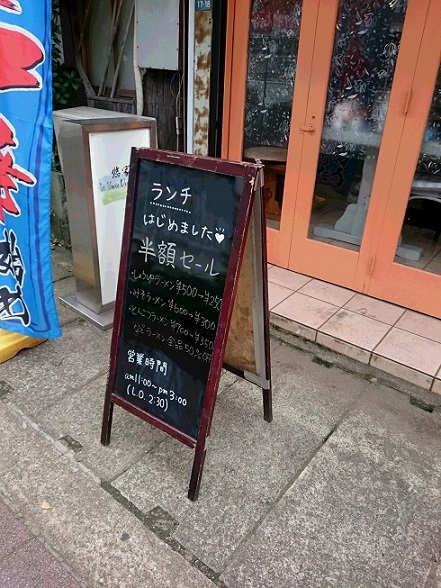 17-18
ランチ
はじめました♥
半額セール
・しょうゆラーメン ¥500→¥250
・みそラーメン ¥600→¥300
・とんこつラーメン ¥700→¥350
など ラーメン全品50%OFF
営業時間
am11:00~pm3:00
(L.O. 2:30)